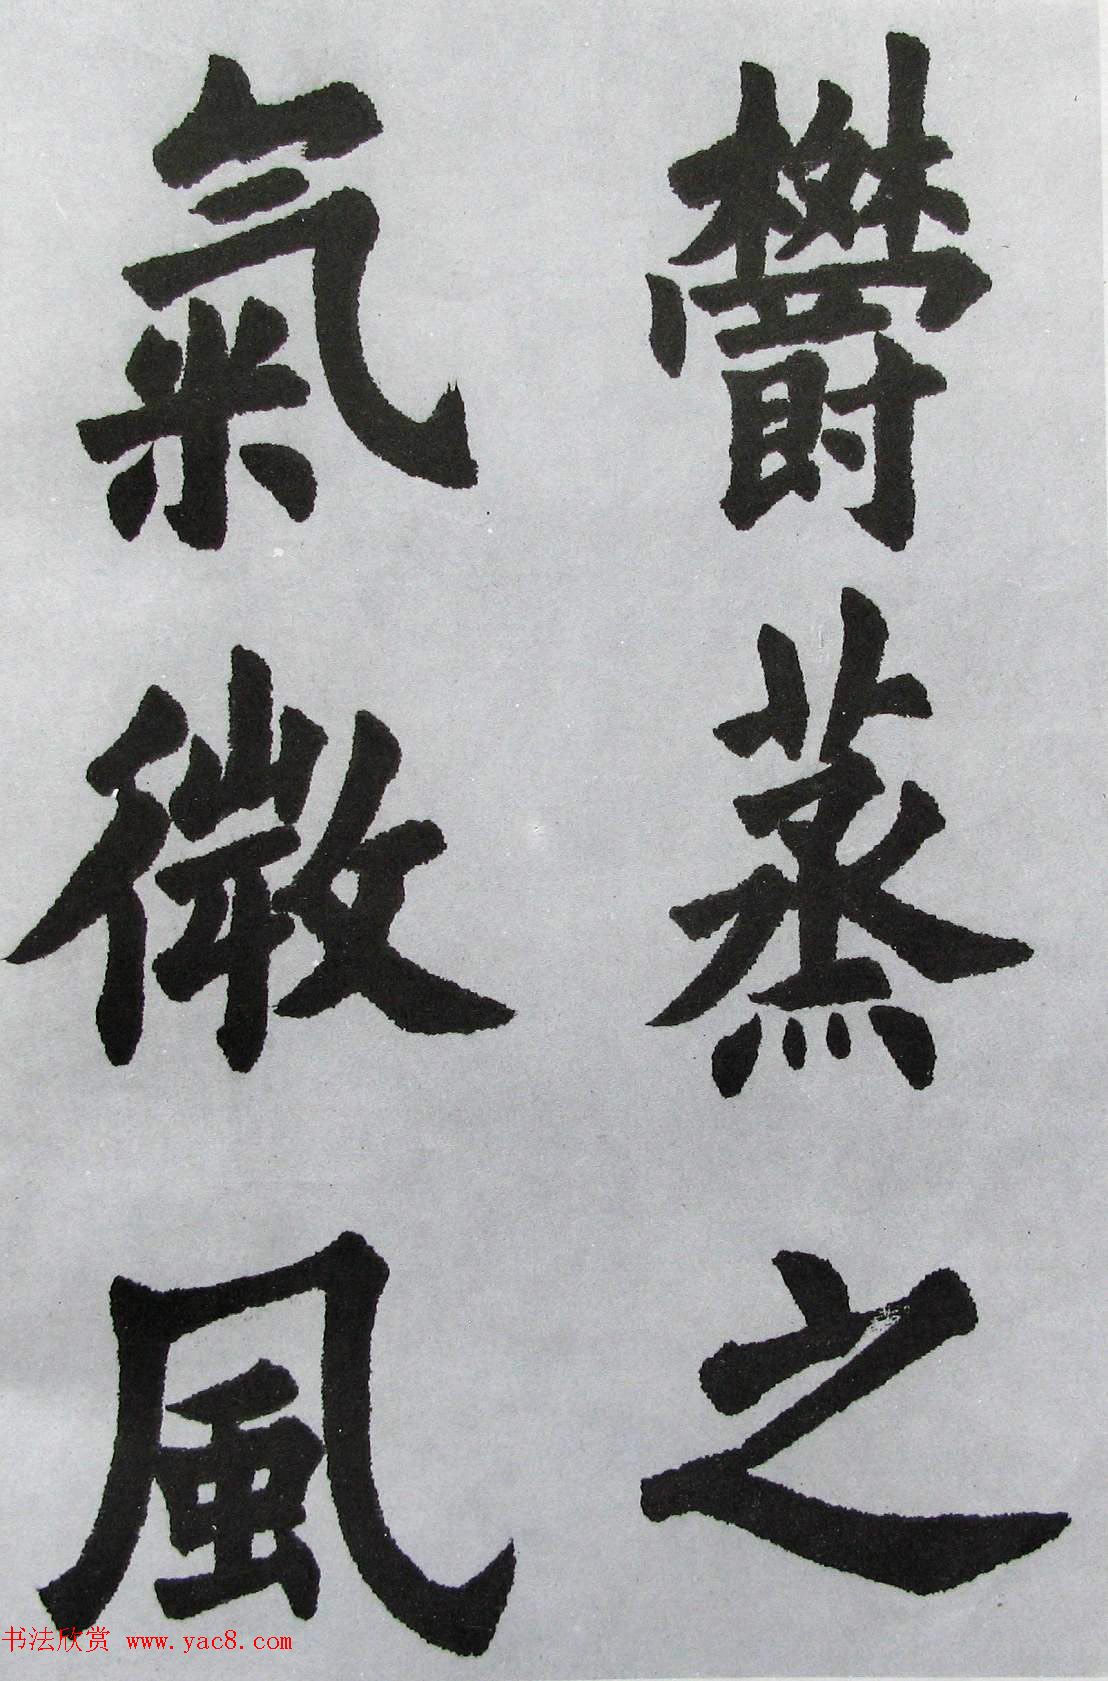 欝蒸之
氣微風
书法欣赏 www.yac8.com